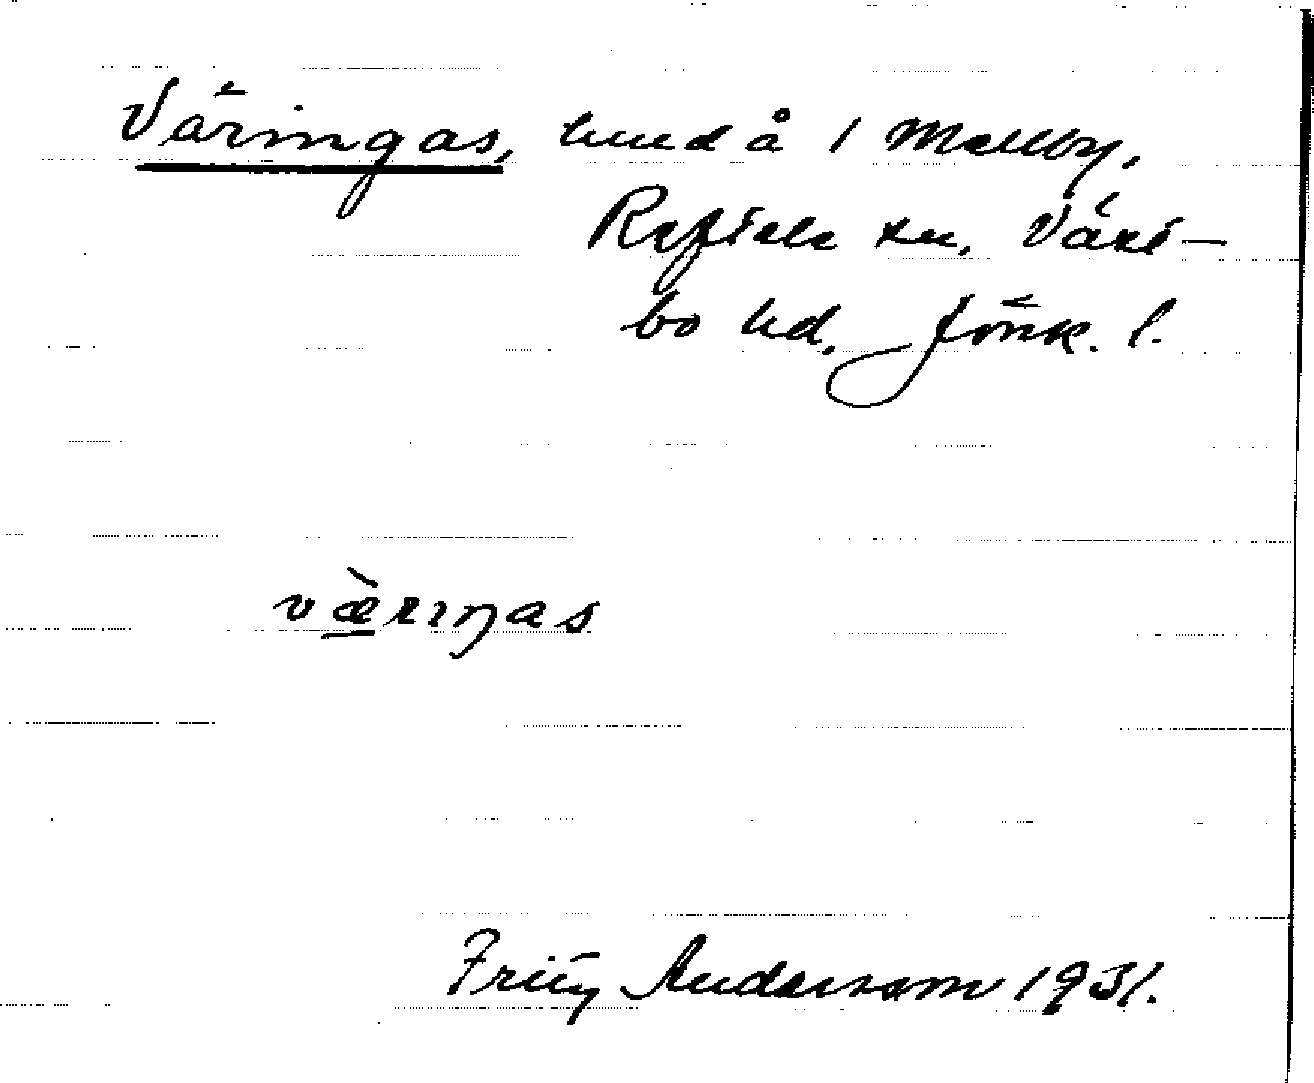 Väringas, hmd å 1 Mellby,
Reftele sn, Väst-
bo hd, Jönk. l.
væ̀rıŋas
Fritz Andersson 1931.